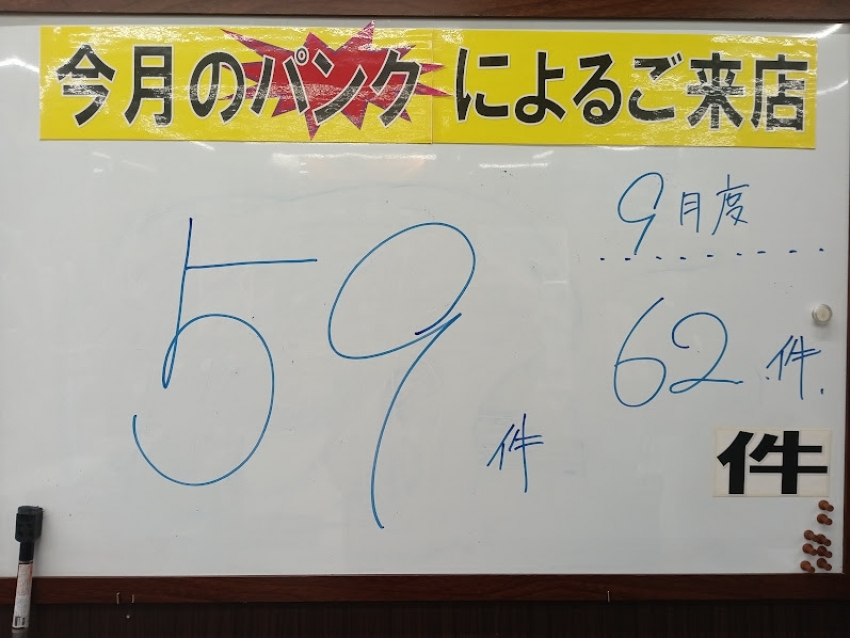 今月のパンクによるご来店
9月度
59件
62件.
件